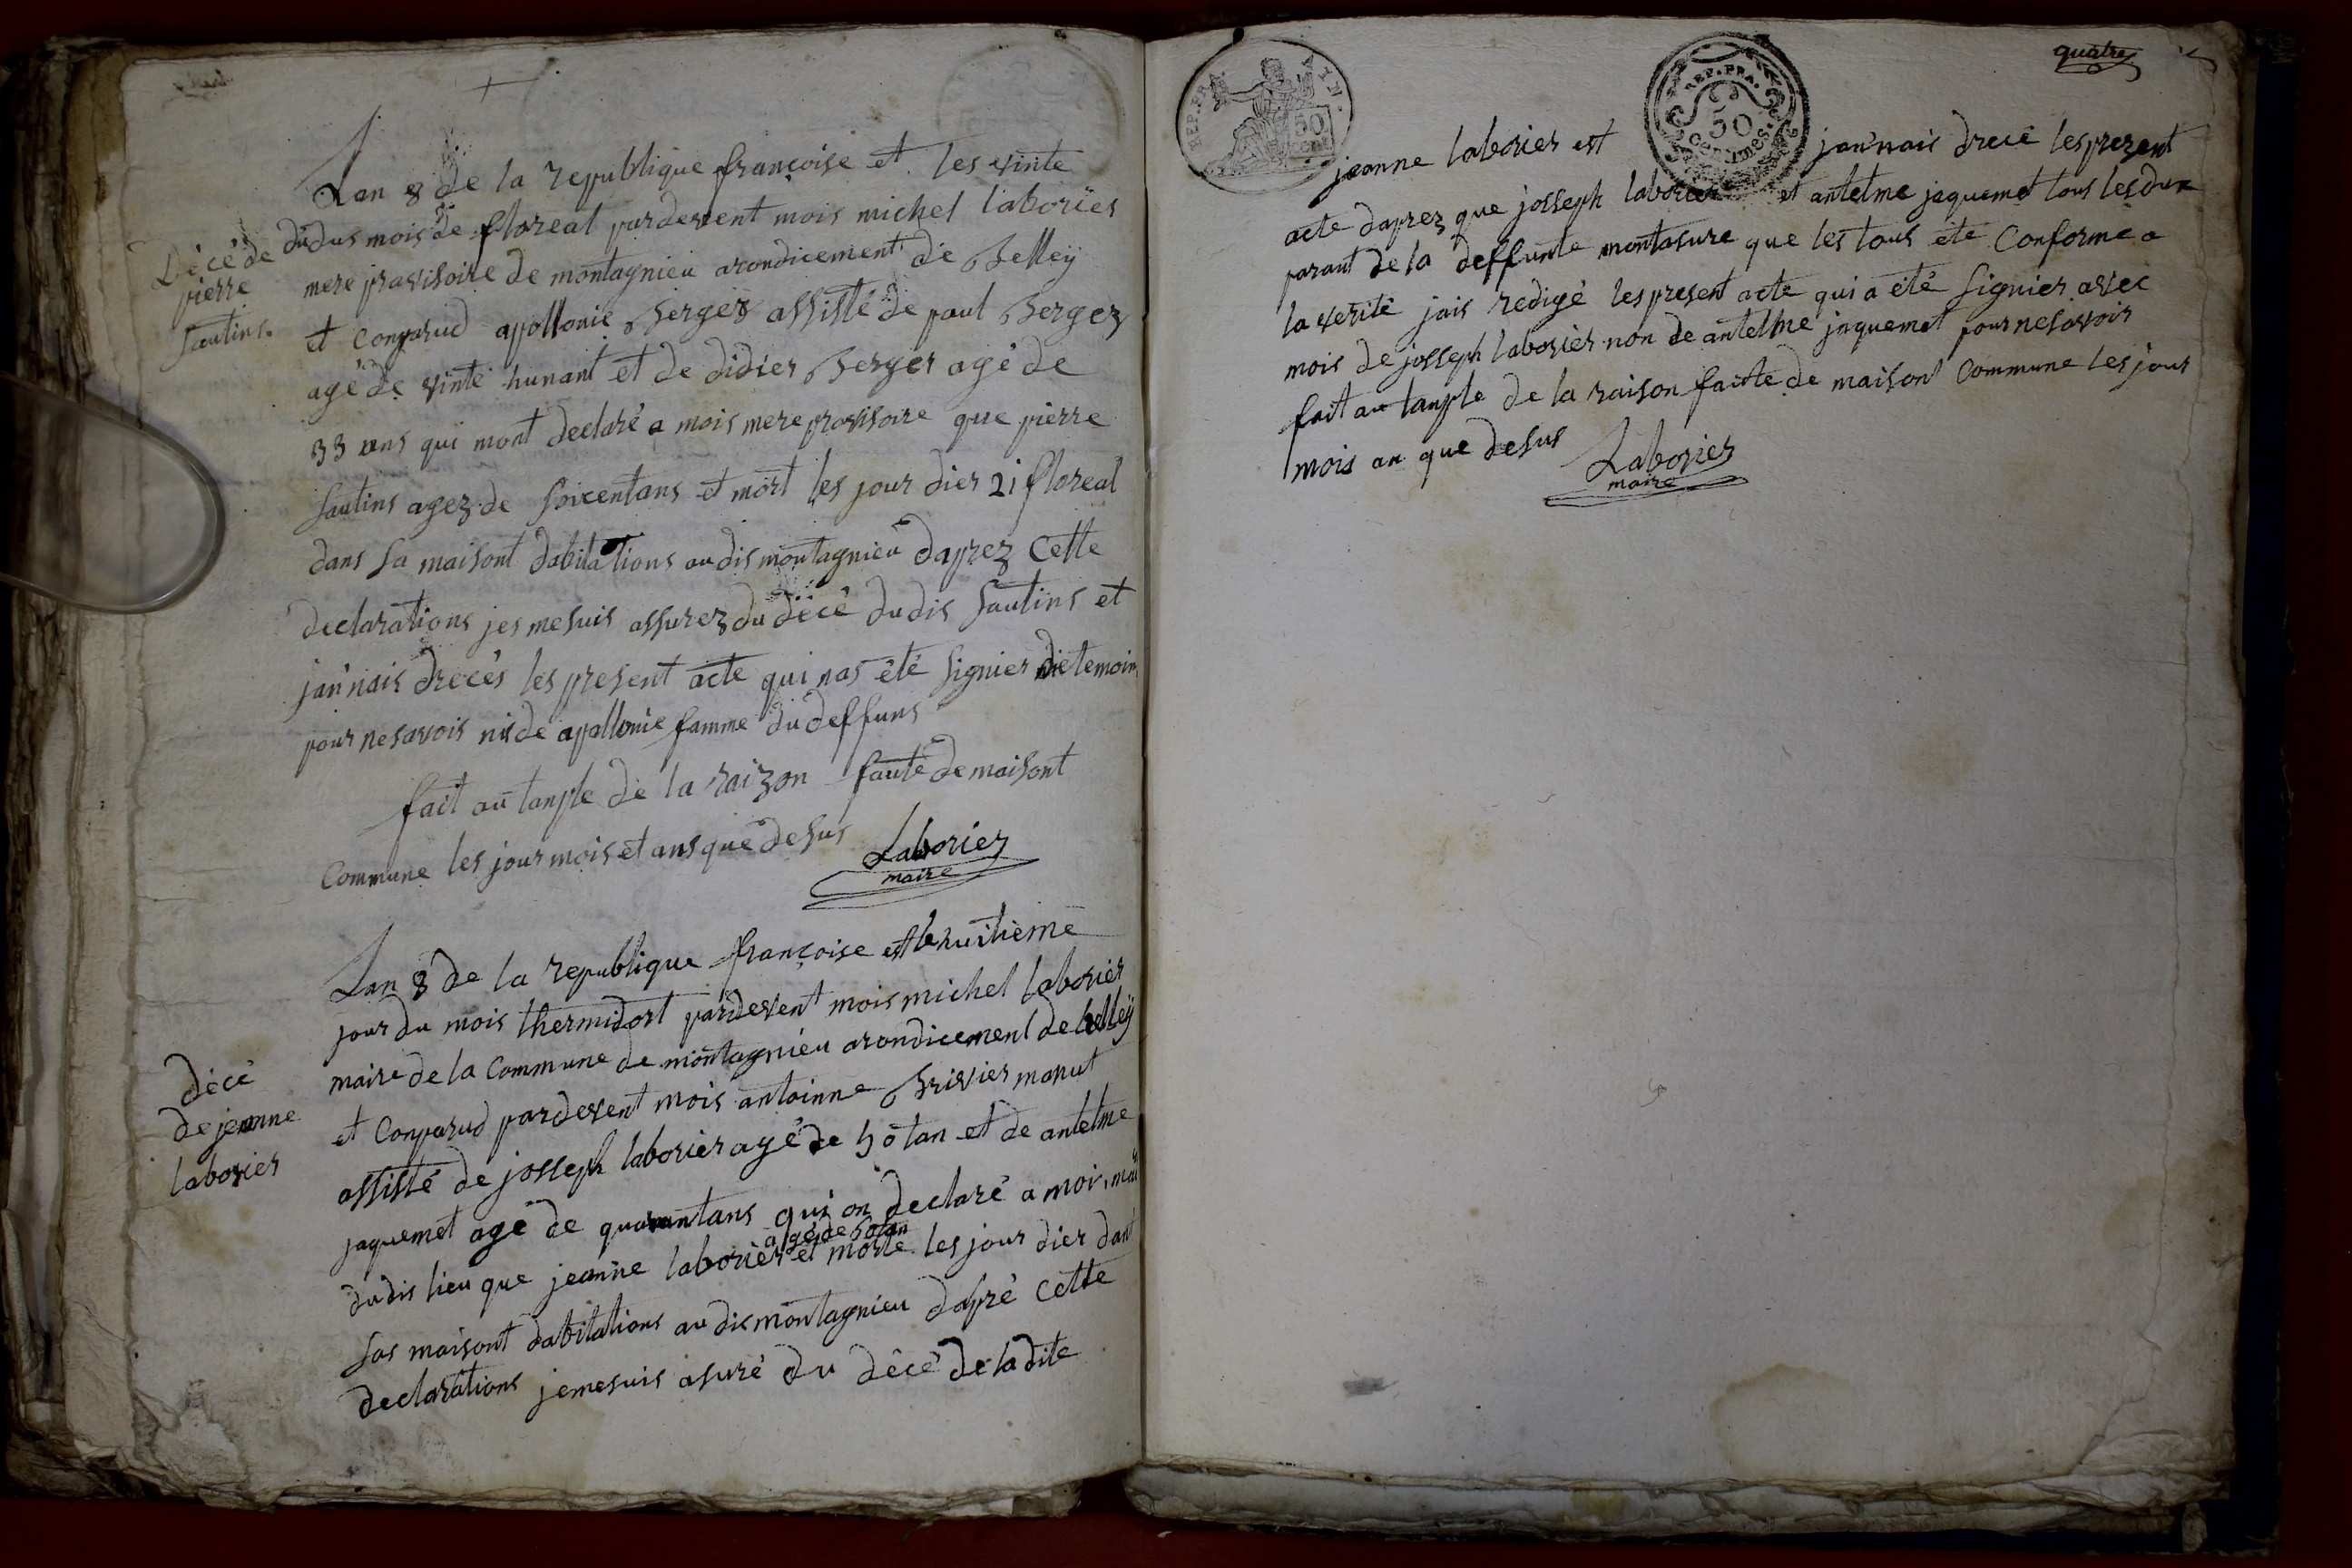 Décé de
pierre
Sautins.
Lan 8 de la republique françoise et les vinte
dudus mois de floreal pardevent mois michel laborier
mere provisoire de montagnieu arondicement de Belley
et Conparud apollonie Berger assisté de paul Berger
agé de vinte hunant et de didier Berger agé de
33 ans qui mont declaré a mois mere provisoire que pierre
Sautins agez de Soicentans et mort les jour dier 21 floreal
dans Sa maisont dabitations au dis montagnieu daprez Cette
declarations jes me suis assurez du décé du dis Sautins et
jan'nais drecés les present acte qui nas été Signier die temoin
pour ne savois nis de apallonie famme du deffuns
fait au tanple de la raizon faute de maisont
Commune les jour mois et ans que desus
Laborier
maire
décé
de jeanne
laborier
Lan 8 de la republique françoise est le huitième
jour du mois thermidort pardevent mois michel laborier
maire de la Commune de montagnieu arondicement de belley
et Conparud pardevent mois antoinne Brivier manut
assisté de josseph laborier agé de 50 tan et de antelme
jaquemet agé de quarantans qui on declaré a moi, mai
agé de 50 tan
du dis lieu que jeanne laborier et morte les jour dier dant
Sas maisont dabitations au dis montagnieu dapré Cette
declarations je me suis asuré du décé de la dite
quatre
REP. FRA.
50
CENT
REP. FRA.
50
Centimes.
jeanne laborier est jan'nais drecé les prezent
acte daprez que josseph laborier et antelme jaquemet tous les dux
parant de la deffunte montasure que les tous été Conforme a
la verité jais redigé les present acte qui a été Signier avec
mois de josseph laborier non de antelme jaquemet pour ne savoir
fait au tanple de la raison faute de maisont Commune les jour
mois an que desus
Laborier
maire